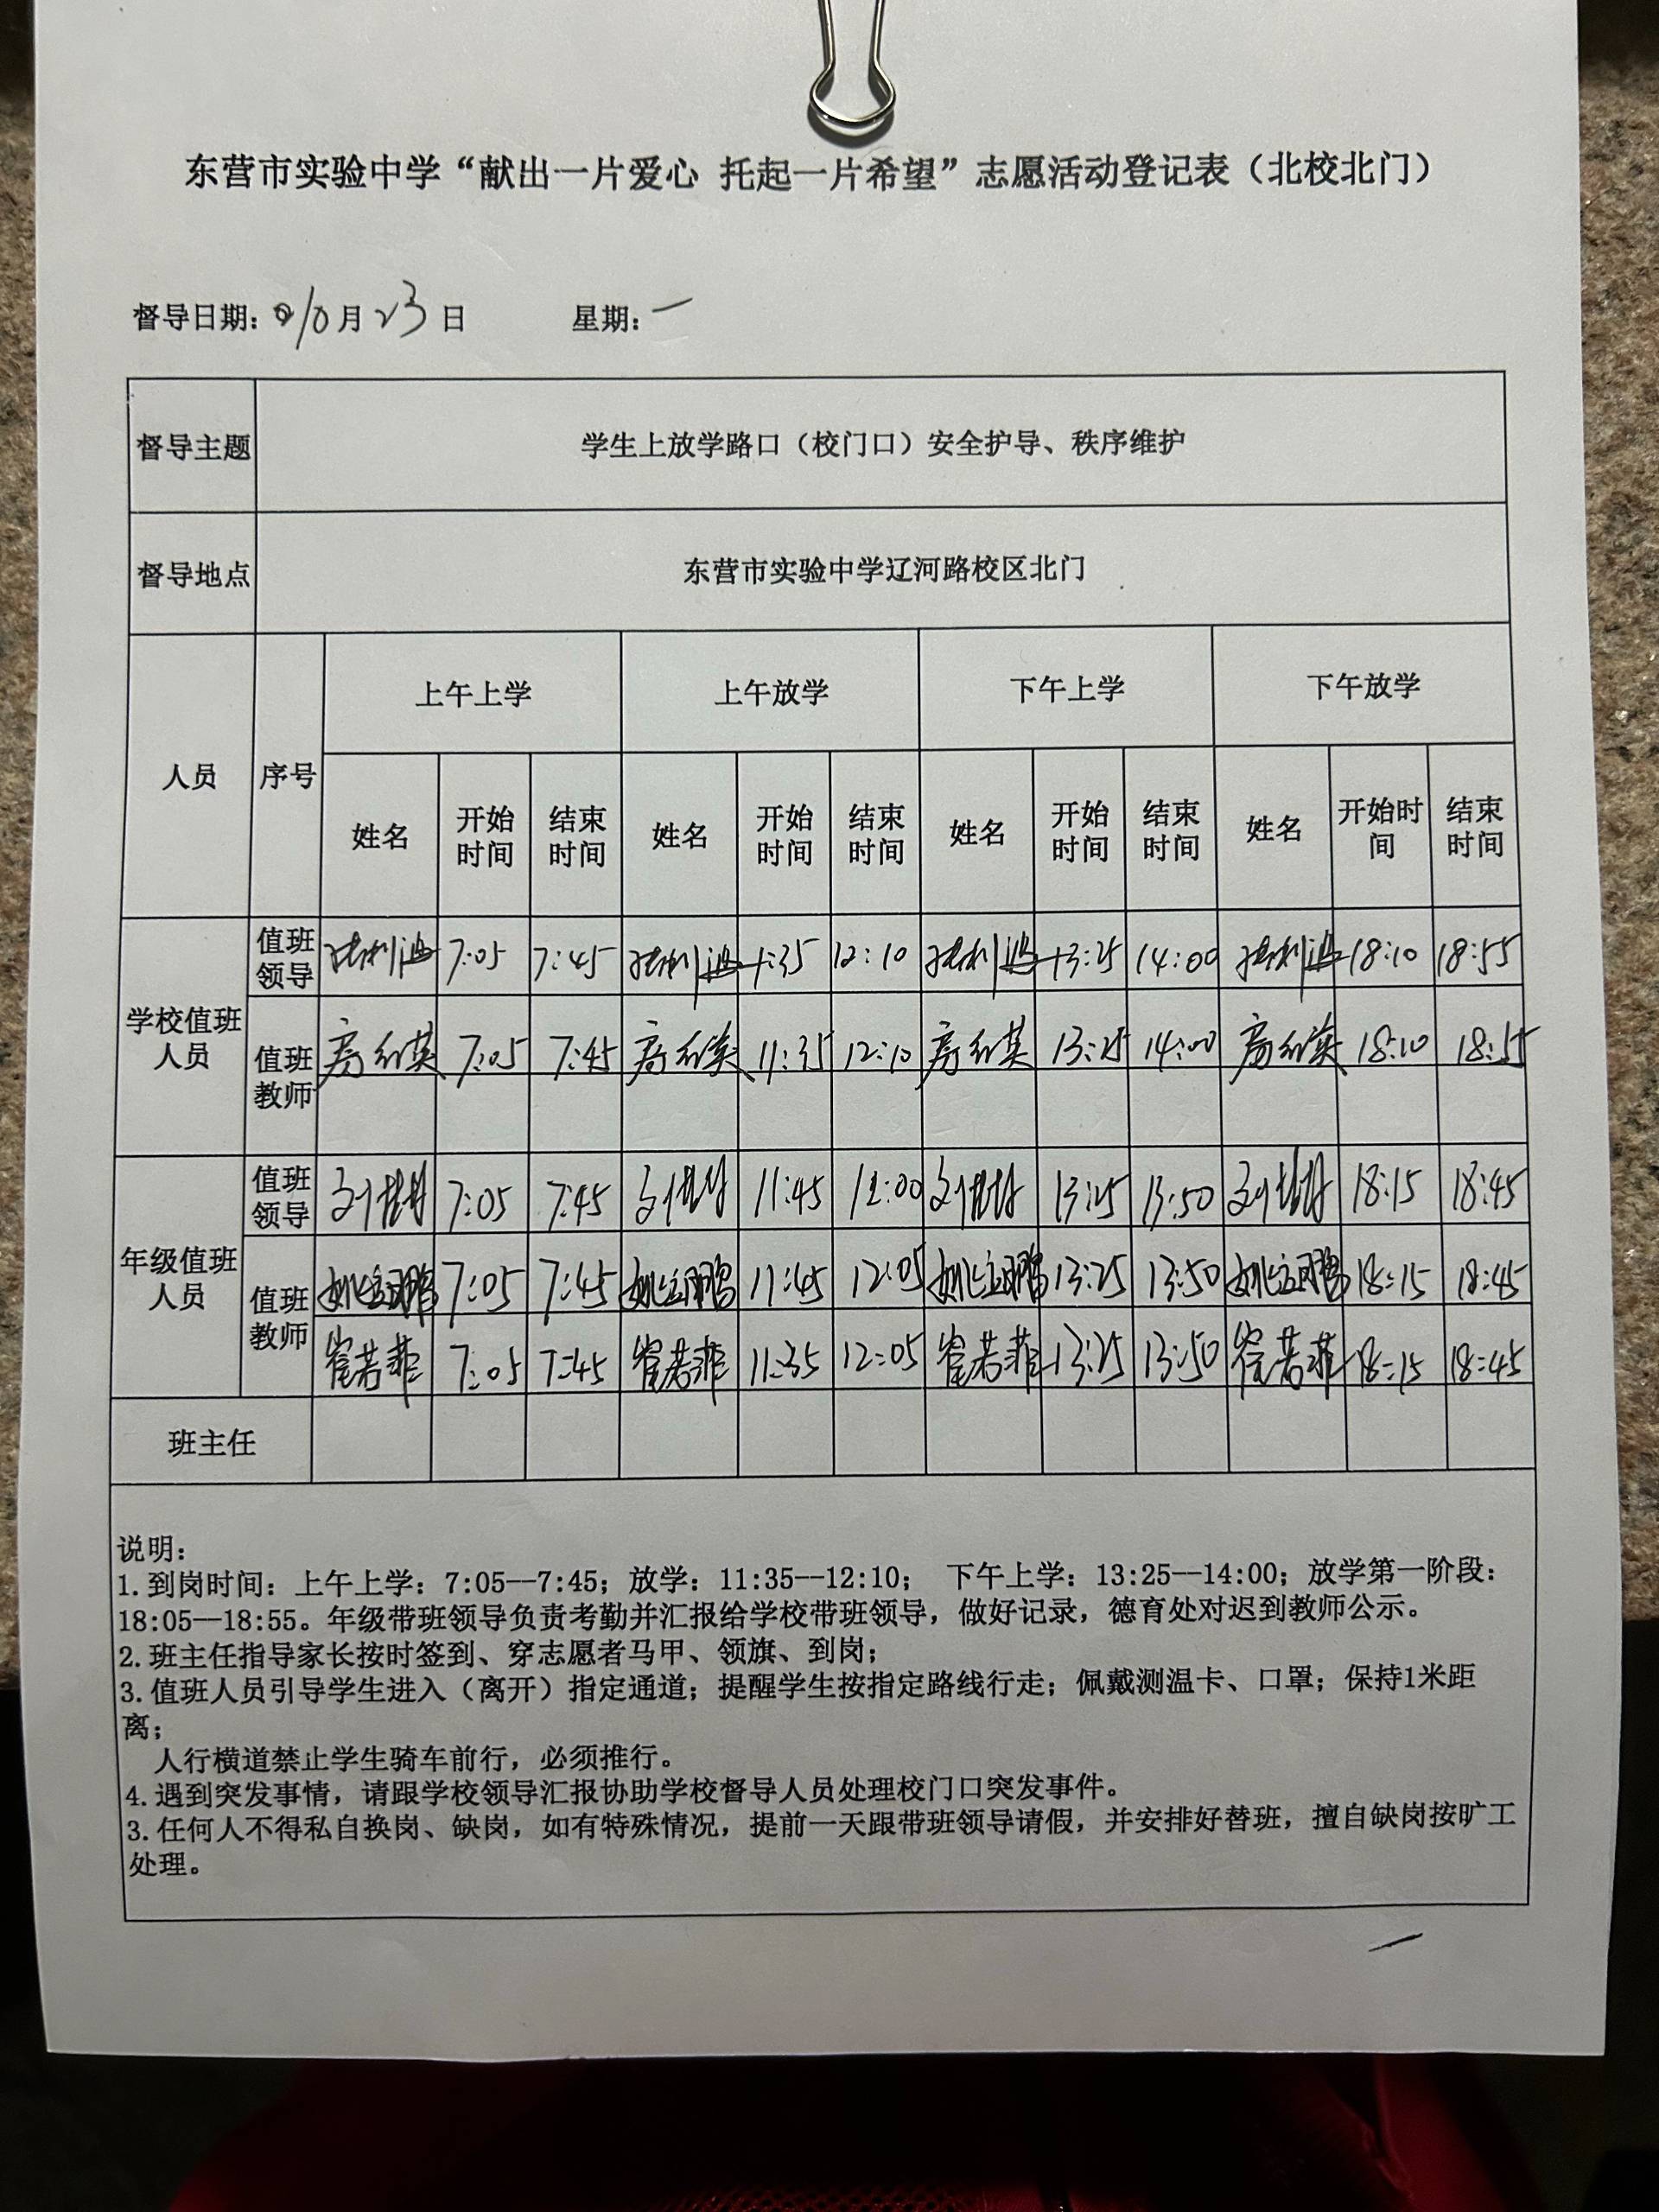 东营市实验中学“献出一片爱心 托起一片希望”志愿活动登记表（北校北门）
督导日期：10月23日 星期：一
督导主题 学生上放学路口（校门口）安全护导、秩序维护
督导地点 东营市实验中学辽河路校区北门
人员 序号 上午上学 上午放学 下午上学 下午放学
姓名 开始时间 结束时间 姓名 开始时间 结束时间 姓名 开始时间 结束时间 姓名 开始时间 结束时间
学校值班人员 值班领导 7:05 7:45 12:10 13:25 14:00 18:10 18:55
值班教师 房红英 7:05 7:45 房红英 11:35 12:10 房红英 13:25 14:00 房红英 18:10 18:55
年级值班人员 值班领导 7:05 7:45 11:45 12:00 13:25 13:50 18:15 18:45
值班教师 姚立鹏 7:05 7:45 姚立鹏 11:45 12:05 姚立鹏 13:25 13:50 姚立鹏 18:15 18:45
崔若菲 7:05 7:45 崔若菲 11:35 12:05 崔若菲 13:25 13:50 崔若菲 18:15 18:45
班主任
说明：
1.到岗时间：上午上学：7:05--7:45；放学：11:35--12:10； 下午上学：13:25--14:00；放学第一阶段：
18:05--18:55。年级带班领导负责考勤并汇报给学校带班领导，做好记录，德育处对迟到教师公示。
2.班主任指导家长按时签到、穿志愿者马甲、领旗、到岗；
3.值班人员引导学生进入（离开）指定通道；提醒学生按指定路线行走；佩戴测温卡、口罩；保持1米距
离；
人行横道禁止学生骑车前行，必须推行。
4.遇到突发事情，请跟学校领导汇报协助学校督导人员处理校门口突发事件。
3.任何人不得私自换岗、缺岗，如有特殊情况，提前一天跟带班领导请假，并安排好替班，擅自缺岗按旷工
处理。